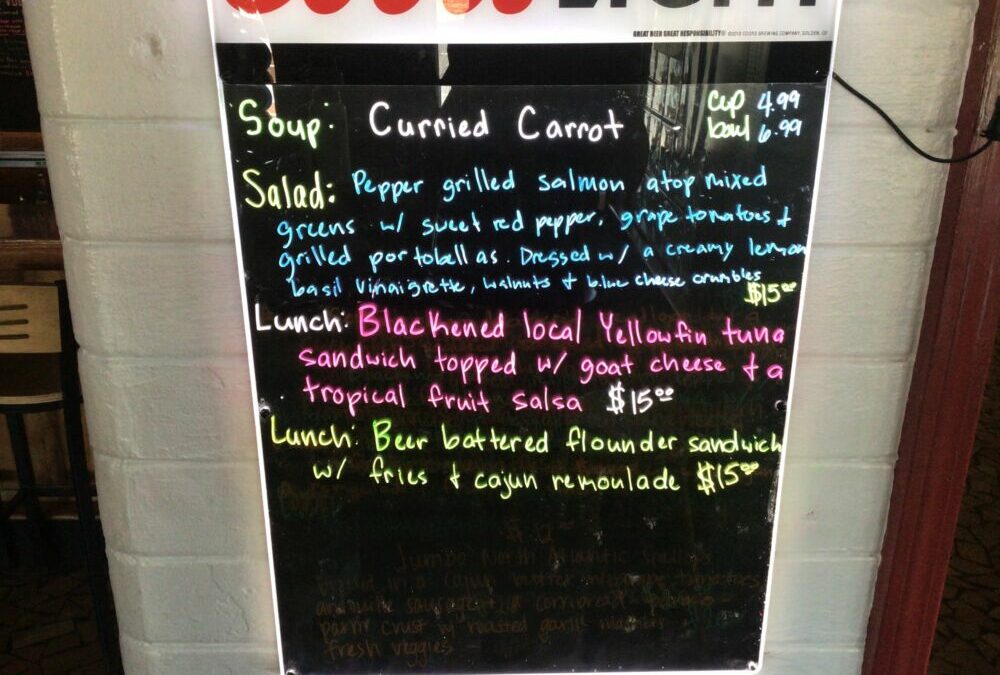 GREAT BEER GREAT RESPONSIBILITY® ©2013 COORS BREWING COMPANY, GOLDEN, CO
Soup: Curried Carrot - cup 4.99
bowl 6.99
Salad: Pepper grilled salmon atop mixed
greens w/ sweet red pepper, grape tomatoes &
grilled portobellas. Dressed w/ a creamy lemon
basil vinaigrette, walnuts & blue cheese crumbles
$15.00
Lunch: Blackened local Yellowfin tuna
sandwich topped w/ goat cheese & a
tropical fruit salsa $15.00
Lunch: Beer battered flounder sandwich
w/ fries & cajun remoulade $15.00
Jumbo North Atlantic
in a cajun butter tomatoes
sausage cornbread
parm crust w/ roasted garlic
fresh veggies